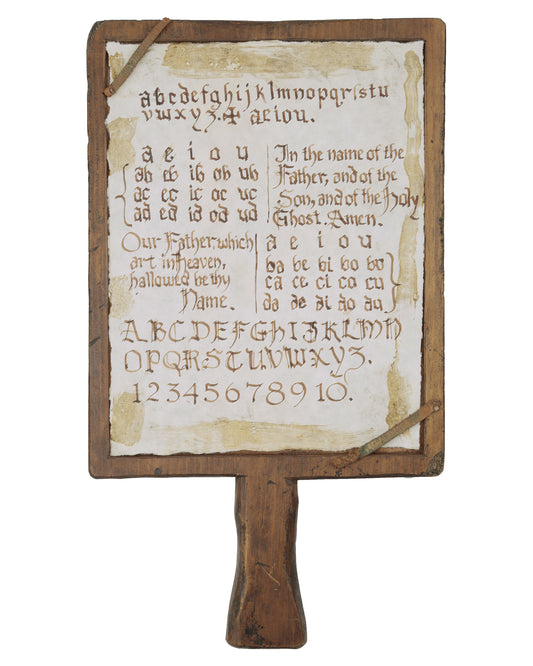 abcdefghijklmnopqrſstu
vwxyz.✠ aeiou.
a e i o u
ab eb ib ob ub
ac ec ic oc uc
ad ed id od ud
In the name of the
Father, and of the
Son, and of the Holy
Ghost. Amen.
Our Father, which
art in heaven,
hallowed be thy
Name.
a e i o u
ba be bi bo bu
ca ce ci co cu
da de di do du
ABCDEFGHIJKLMN
OPQRSTUVWXYZ.
12345678910.